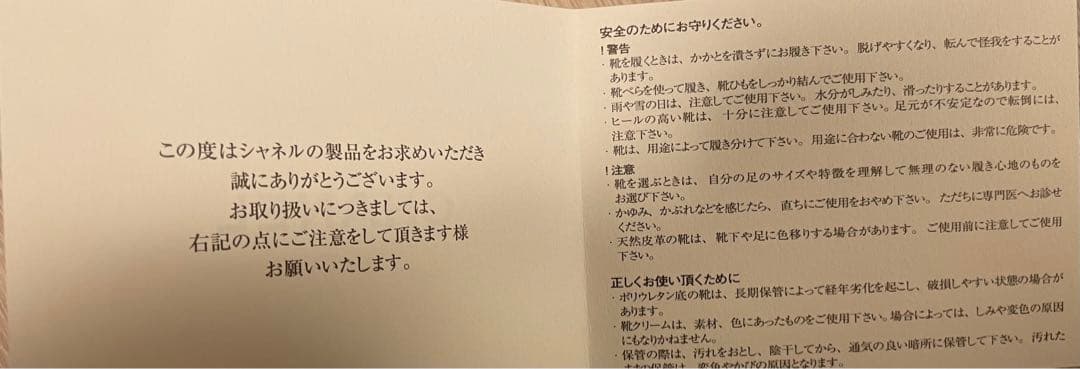 この度はシャネルの製品をお求めいただき
誠にありがとうございます。
お取り扱いにつきましては、
右記の点にご注意をして頂きます様
お願いいたします。
安全のためにお守りください。
！警告
・靴を履くときは、かかとを潰さずにお履き下さい。脱げやすくなり、転んで怪我をすることが
あります。
・靴べらを使って履き、靴ひもをしっかり結んでご使用下さい。
・雨や雪の日は、注意してご使用下さい。水分がしみたり、滑ったりすることがあります。
・ヒールの高い靴は、十分に注意してご使用下さい。足元が不安定なので転倒には、
注意下さい。
・靴は、用途によって履き分けて下さい。用途に合わない靴のご使用は、非常に危険です。
！注意
・靴を選ぶときは、自分の足のサイズや特徴を理解して無理のない履き心地のものを
お選び下さい。
・かゆみ、かぶれなどを感じたら、直ちにご使用をおやめ下さい。ただちに専門医へお診せ
ください。
・天然皮革の靴は、靴下や足に色移りする場合があります。ご使用前に注意してご使用
下さい。
正しくお使い頂くために
・ポリウレタン底の靴は、長期保管によって経年劣化を起こし、破損しやすい状態の場合が
あります。
・靴クリームは、素材、色にあったものをご使用下さい。場合によっては、しみや変色の原因
にもなりかねません。
・保管の際は、汚れをおとし、陰干してから、通気の良い暗所に保管して下さい。汚れた
ままの保管は、変色やかびの原因となります。